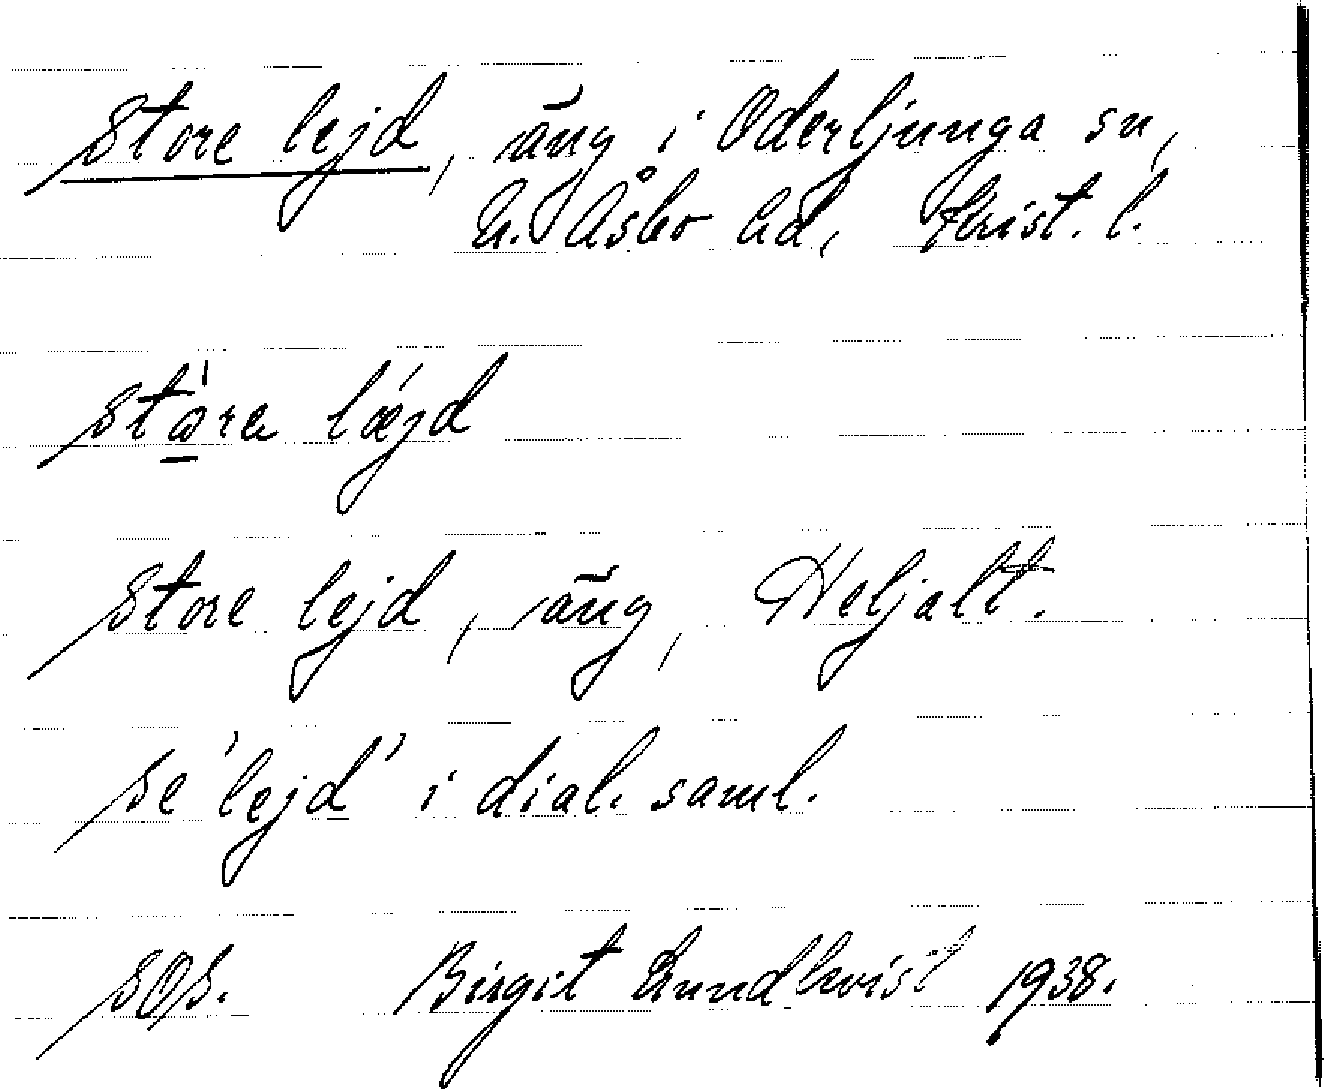 Store lejd, äng i Oderljunga sn,
N. Åsbo hd, Krist. l.
stɷ̀ra lǽjd
Store lejd, äng, Heljalt.
se 'lejd' i dial. saml.
SOS. Birgit Lundkvist 1938.